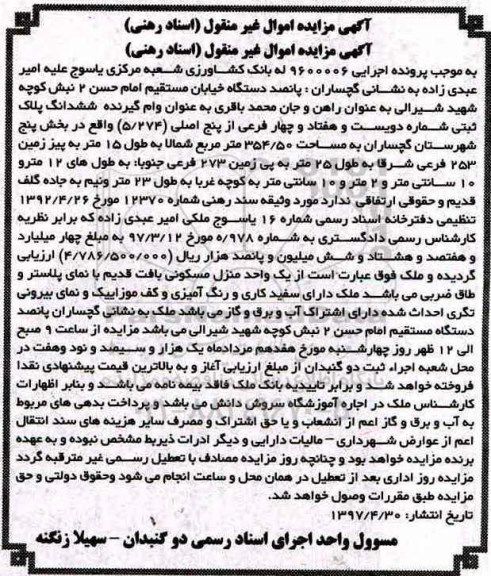 آگهی مزایده اموال غیر منقول (اسناد رهنی)
آگهی مزایده اموال غیر منقول (اسناد رهنی)
به موجب پرونده اجرایی ۹۶۰۰۰۰۶ له بانک کشاورزی شعبه مرکزی یاسوج علیه امیر
عبدی زاده به نشانی گچساران : پانصد دستگاه خیابان مستقیم امام حسن ۲ نبش کوچه
شهید شیرالی به عنوان راهن و جان محمد باقری به عنوان وام گیرنده ششدانگ پلاک
ثبتی شماره دویست و هفتاد و چهار فرعی از پنج اصلی (۵/۲۷۴) واقع در بخش پنج
شهرستان گچساران به مساحت ۳۵۴/۵۰ متر مربع شمالا به طول ۱۵ متر به پیز زمین
۲۵۳ فرعی شرقا به طول ۲۵ متر به پی زمین ۲۷۳ فرعی جنوبا: به طول های ۱۲ مترو
۱۰ سانتی متر و ۲ متر و ۱۰ سانتی متر به کوچه غربا به طول ۲۳ متر ونیم به جاده گلف
قدیم و حقوقی ارتفاقی ندارد مورد وثیقه سند رهنی شماره ۱۲۳۷۰ مورخ ۱۳۹۲/۴/۲۶
تنظیمی دفترخانه اسناد رسمی شماره ۱۶ یاسوج ملکی امیر عبدی زاده که برابر نظریه
کارشناس رسمی دادگستری به شماره ۰/۹۷۸ مورخ ۹۷/۳/۱۲ به مبلغ چهار میلیارد
و هفتصد و هشتاد و شش میلیون و پانصد هزار ریال (۴/۷۸۶/۵۰۰/۰۰۰) ارزیابی
گردیده و ملک فوق عبارت است از یک واحد منزل مسکونی بافت قدیم با نمای پلاستر و
طاق ضربی می باشد ملک دارای سفید کاری و رنگ آمیزی و کف موزاییک و نمای بیرونی
تگری احداث شده دارای اشتراک آب و برق و گاز می باشد ملک به نشانی گچساران پانصد
دستگاه مستقیم امام حسن ۲ نبش کوچه شهید شیرالی می باشد مزایده از ساعت ۹ صبح
الی ۱۲ ظهر روز چهارشنبه مورخ هفدهم مردادماه یک هزار و سیصد و نود وهفت در
محل شعبه اجراء ثبت دو گنبدان از مبلغ ارزیابی آغاز و به بالاترین قیمت پیشنهادی نقدا
فروخته خواهد شد و برابر تاییدیه بانک ملک فاقد بیمه نامه می باشد و بنابر اظهارات
کارشناس ملک در اجاره آموزشگاه سروش دانش می باشد و پرداخت بدهی های مربوط
به آب و برق و گاز اعم از انشعاب و یا حق اشتراک و مصرف سایر هزینه های سند انتقال
اعم از عوارض شهرداری – مالیات دارایی و دیگر ادرات ذیربط مشخص نبوده و به عهده
برنده مزایده خواهد بود و چنانچه روز مزایده مصادف با تعطیل رسمی غیر مترقبه گردد
مزایده روز اداری بعد از تعطیل در همان محل و ساعت انجام می شود وحقوق دولتی و حق
مزایده طبق مقررات وصول خواهد شد.
تاریخ انتشار: ۱۳۹۷/۴/۳۰
مسوول واحد اجرای اسناد رسمی دو گنبدان – سهیلا زنگنه